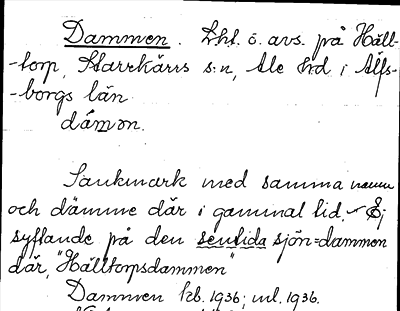 Dammen. Lht. ö. avs. på Häll-
-torp, Starrkärrs s:n, Ale hd i Älfs-
-borgs län.
dámən.
Sankmark med samma namn
och dämme där i gammal tid. Ej
syftande på den sentida sjön=dammen
där, "Hälltorpsdammen"
Dammen kb. 1936; ul. 1936.